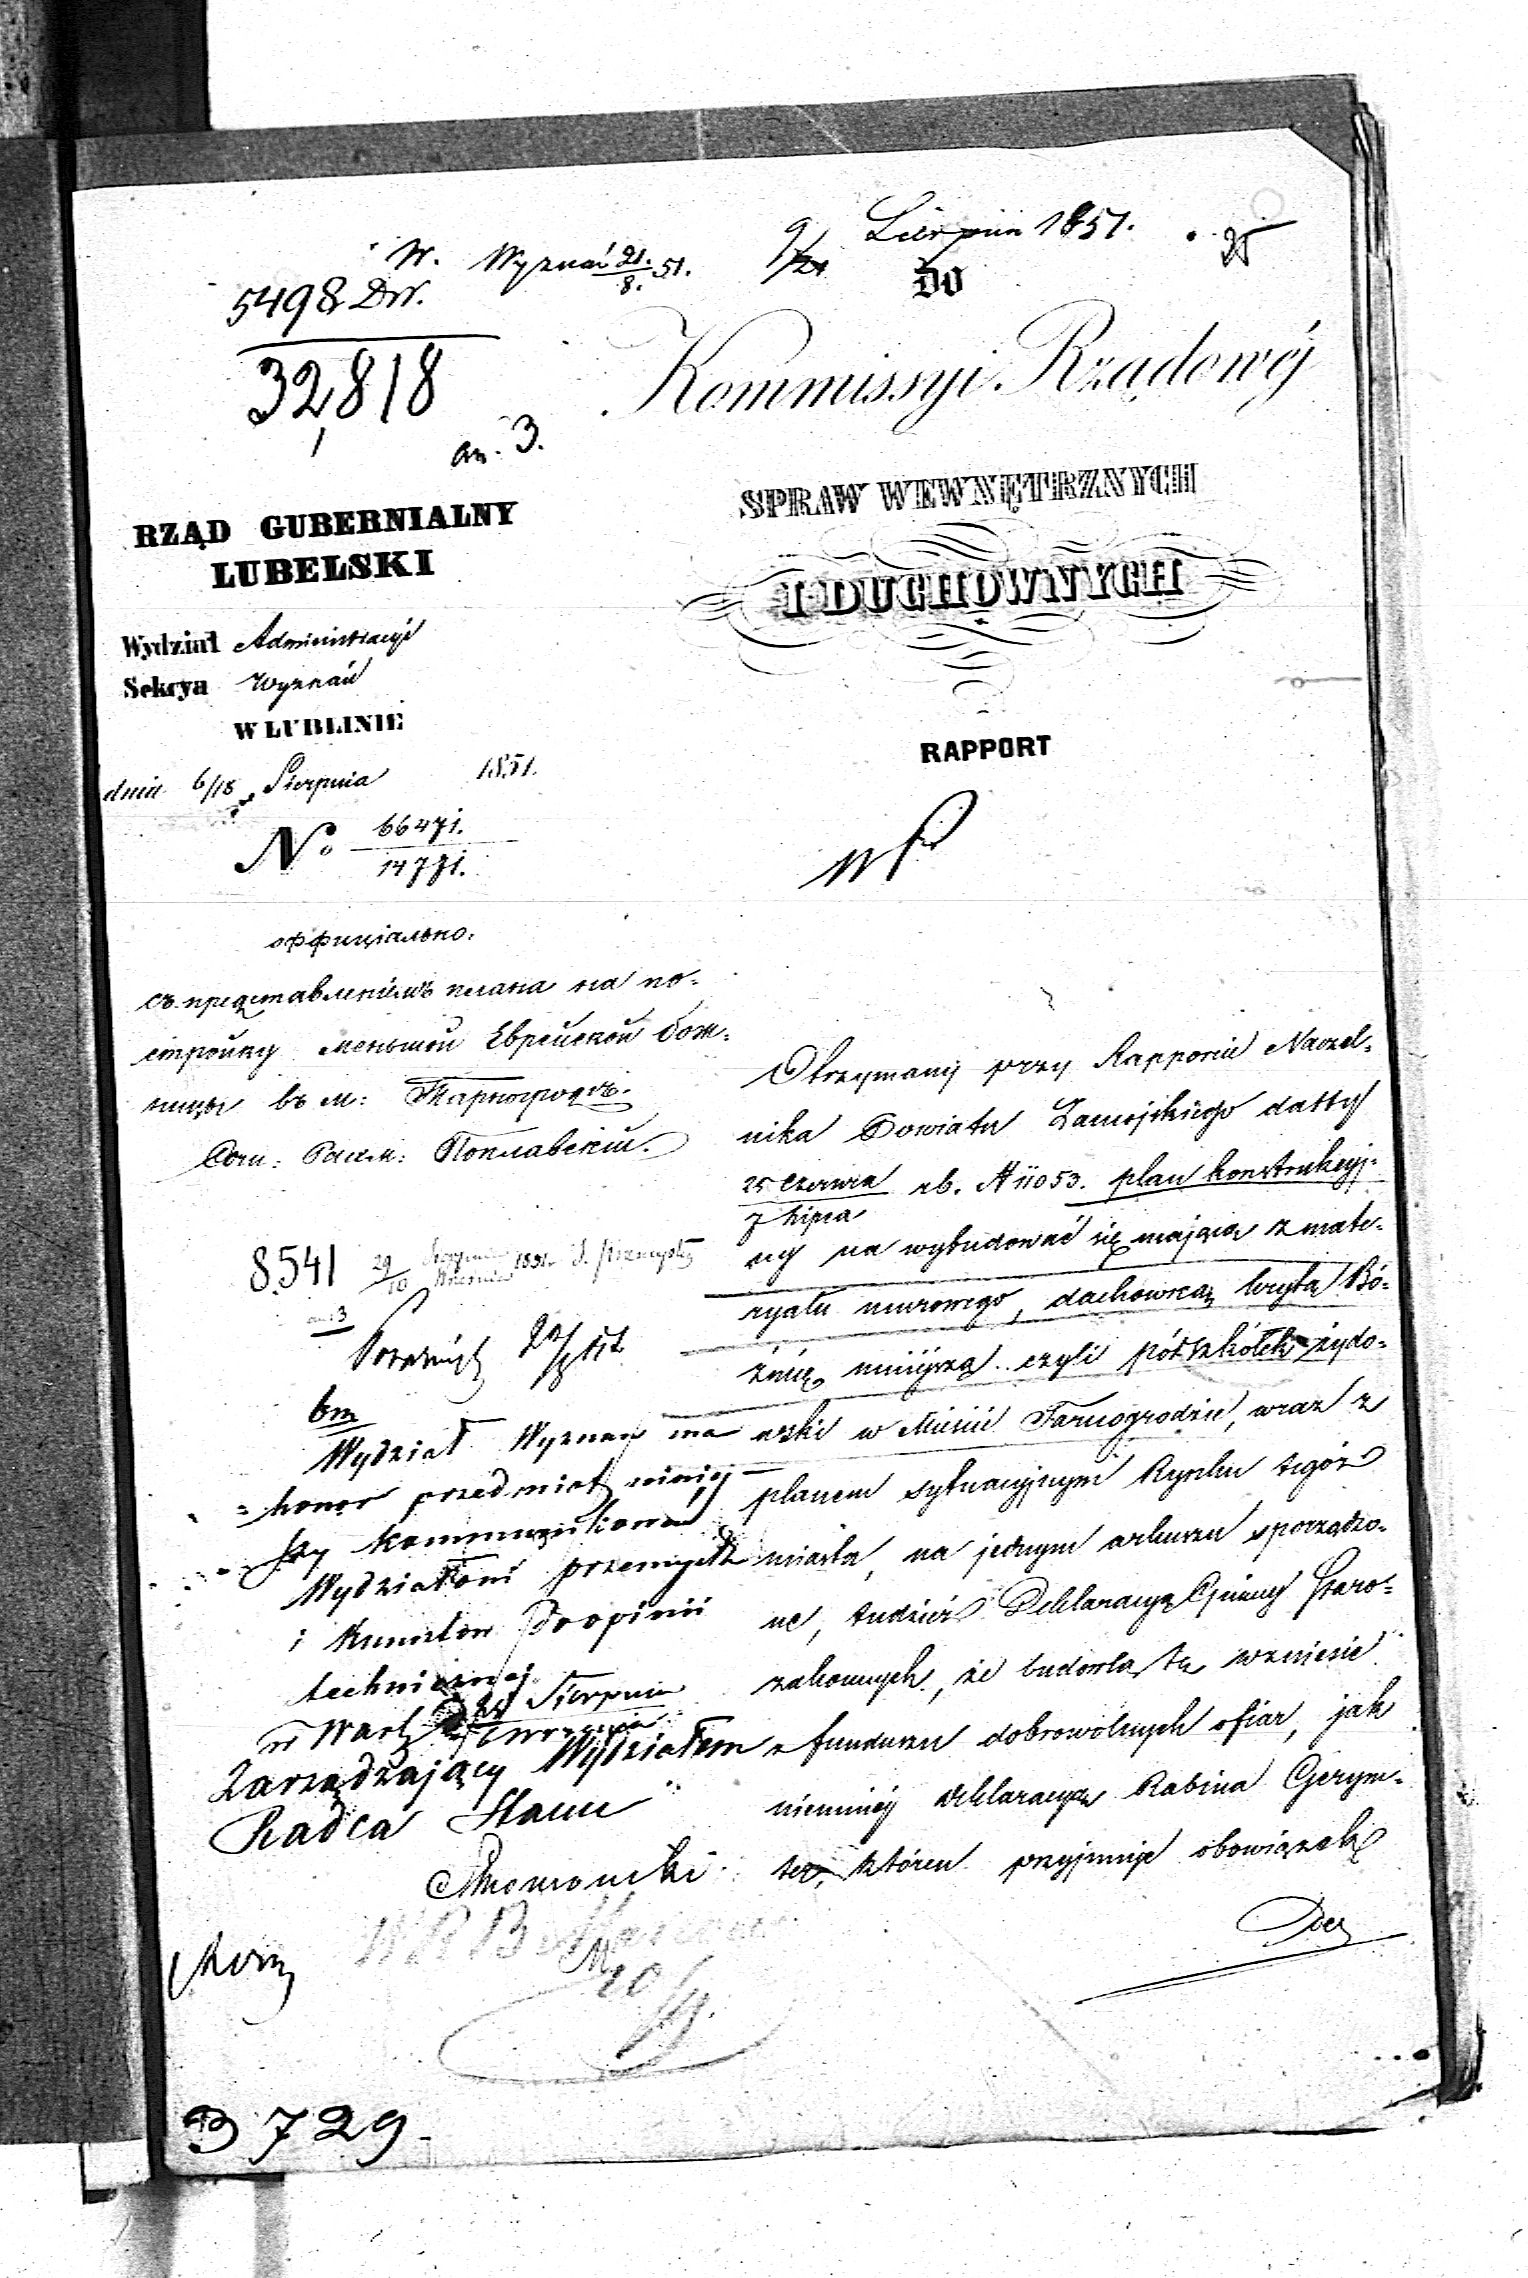 W. Wyznań 21./8. 51.
9/21 Sierpnia 1851.
25
5498 Dw.
32,818
an. 3.
DO
Kommissyi Rządowéj
SPRAW WEWNĘTRZNYCH
I DUCHOWNYCH
RAPPORT
RZĄD GUBERNIALNY
LUBELSKI
Wydział Administracyi
Sekcya Wyznań
W LUBLINIE
dnia 6/18 Sierpnia 1851.
No 66471.
14771.
оффиціально.
съ представленіемъ плана на по-
стройку меньшой Еврейской бож-
ницы въ м: Тарногродѣ.
Otrzymany przy Rapporcie Naczel-
nika Powiatu Zamojskiego datty
25 Czerwca
7 Lipca
rb. N 11053. plan konstrukcyj-
ny na wybudować się mającą z mate-
ryału murowanego, dachówką krytą Bó-
żnicę mniejszą czyli pół szkółek żydo-
wski w Mieście Tarnogrodzie, wraz z
planem sytuacyjnym Rynku tegóż
miasta, na jednym arkuszu sporządzo-
ne, tudzież Deklaracyą Gminy Staro-
zakonnych, że budowlę tę wzniesie
z funduszu dobrowolnych ofiar, jak
niemniej deklaracyą Rabina Gerym-
ter, któren przyjmuje obowiązek
8541
29/10 1851.
an 3
bm
Wydział Wyznań ma
honor przedmiot niniej-
szy kommunikować
Wydziałowi przemysłu
i Kunsztów do opinii
technicznej
w Warsz Sierpnia
Września
Zarządzający Wydziałem
Radca Stanu
3729.